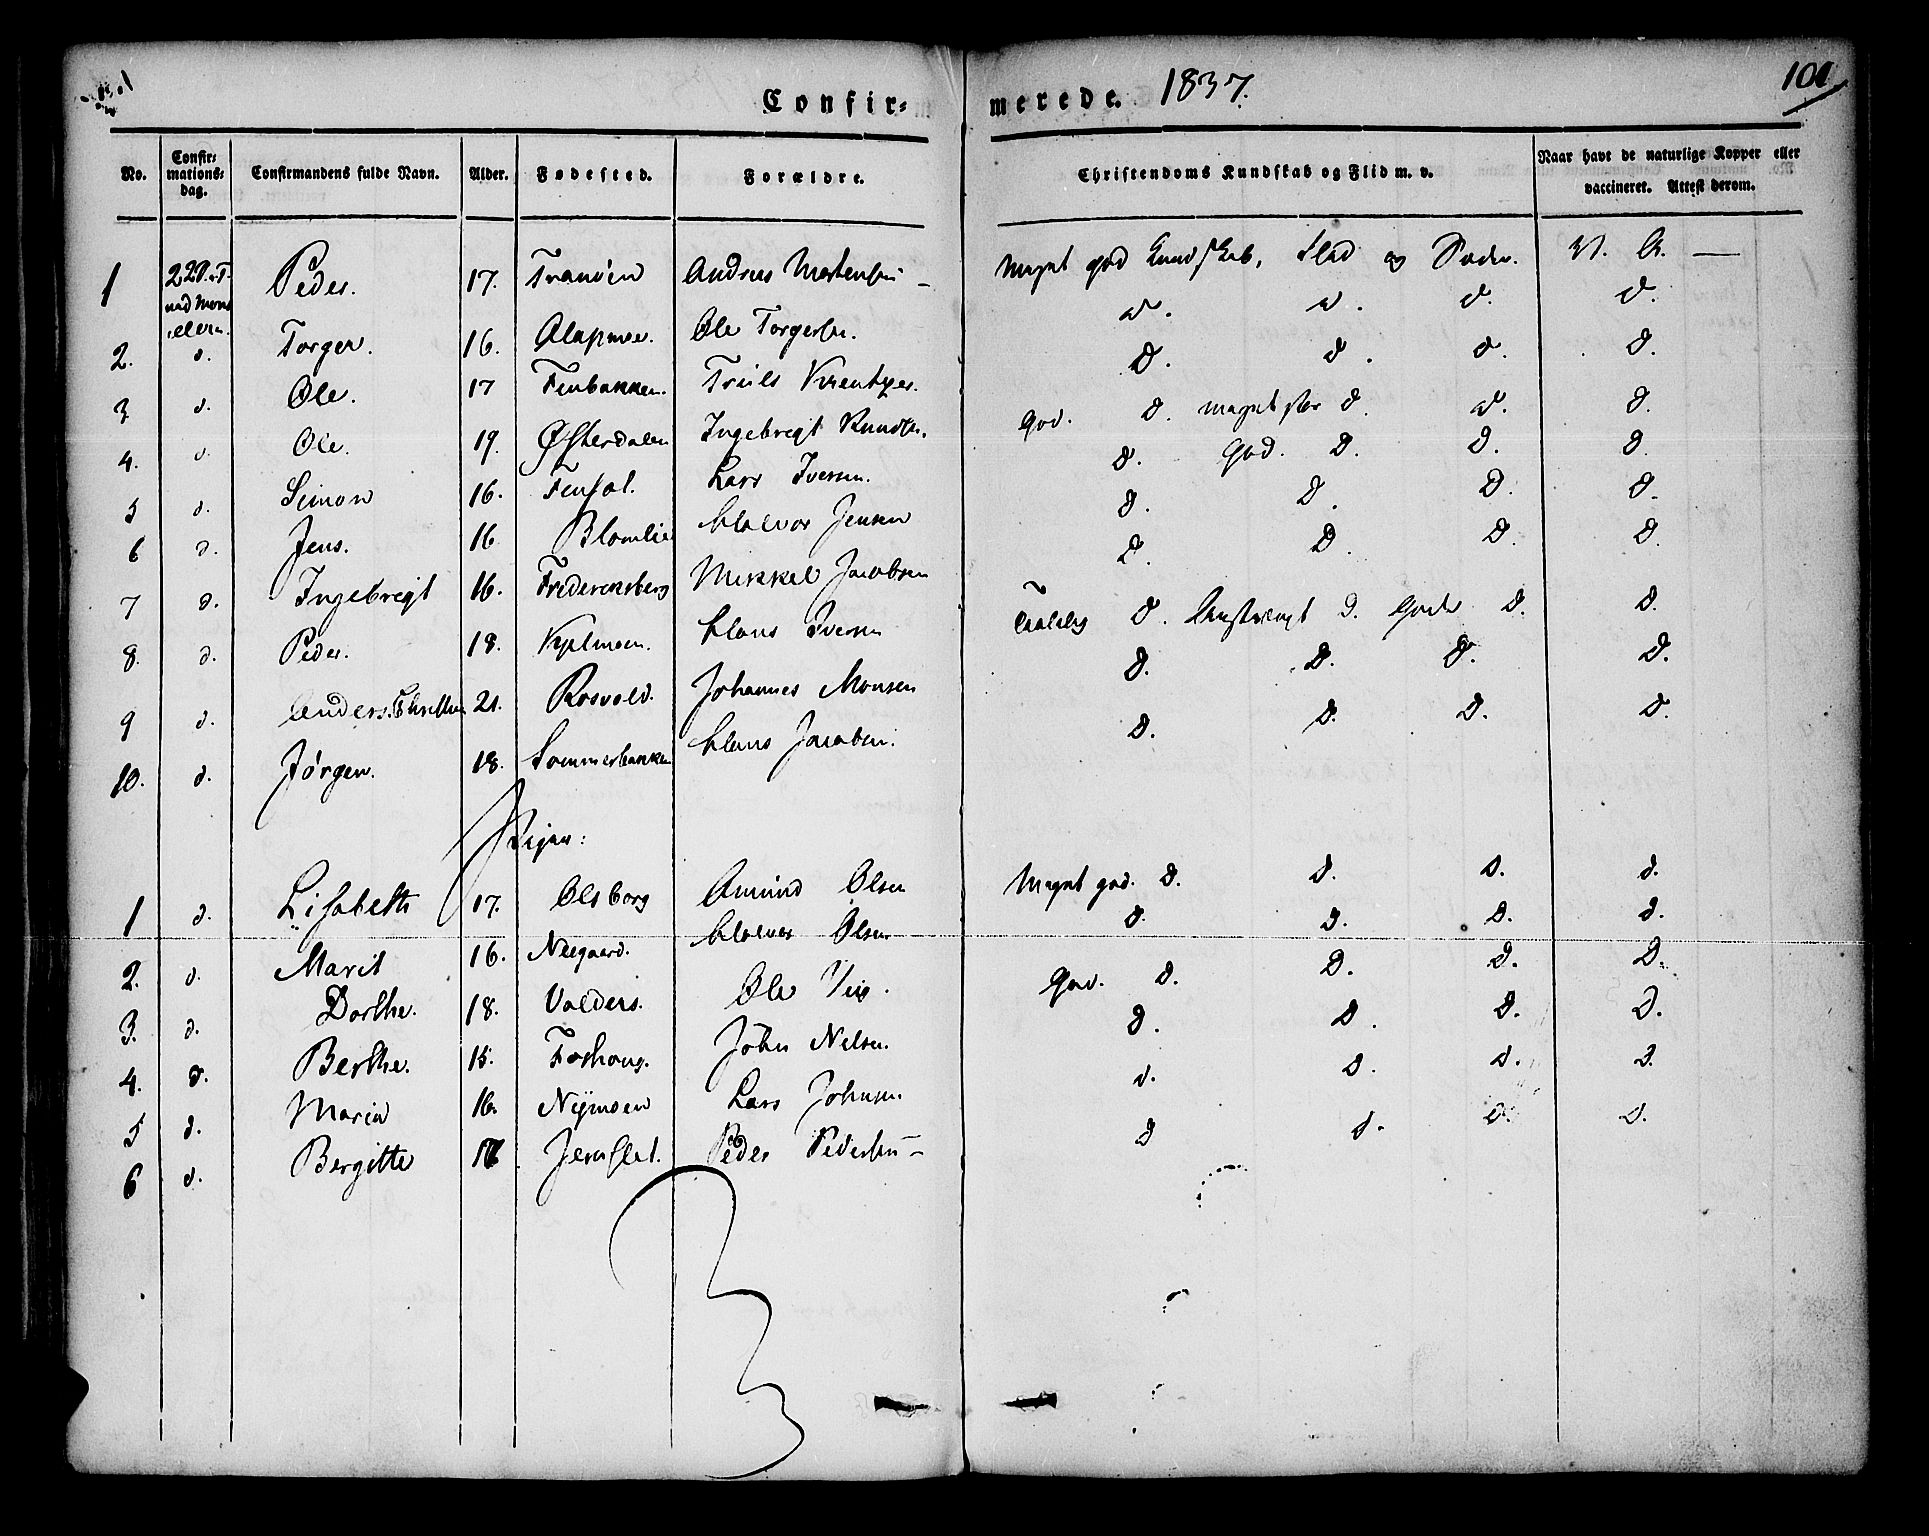 Confir= merede. 1837. 101
No. Confir= mations= dag. Confirmandens fulde Navn. Alder. Fødested. Forældre. Christendoms Kundskab og Flid m. v. Naar havt de naturlige Kopper eller vaccineret. Attest derom.
1 Peder. 17. Tranöen Andreas Mortensen Meget god Kundskab, Flid og Sæder. V. A. —
2. d. Torger. 16. Olapmoe. Ole Torgersen. d. d. d. d.
3 d. Ole. 17 Fenbakken. Truls d. d. d. d.
4. d. Ole. 19. Østerdalen Ingebregt Knudsen. god. d. meget d. d. d.
5 d. Simon 16. Lars Iversen. d. god. d. d. d.
6 d. Jens. 16 Blomlie Halvor Jensen d. d. d. d.
7 d. Ingebregt 16. Frederiksberg Mikkel Jacobsen d. d. d. d.
8. d. Peder. 18. Klaus Iversen Taalelig d. d. gode d. d.
9 d. Anders 21. Rosvold. Johannes Monsen d. d. d. d.
10. d. Jørgen. 18. Sommerbakken Klaus Jacobsen. d. d. d. d.
Piger:
1 d. Lisabeth 17. Olsborg Amund Olsen Meget god. d. d. d. d.
2. d. Marit 16. Neegaard. Halvor Olsen d. d. d. d.
3. d. Dorthe. 18. Valders. Ole god. d. d. d. d.
4. d. Berthe. 15. Foshoug. John Nelsen. d. d. d. d.
5 d. Maria 16. Nymoen Lars Johnsen. d. d. d. d.
6 d. Bergitte Peder Pedersen d d. d. d.